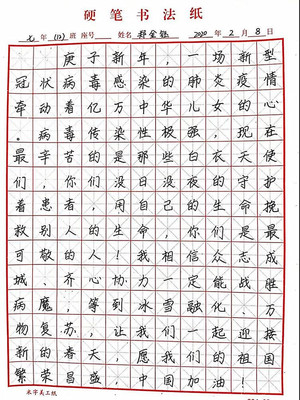 硬笔书法纸
七年(12)班 座号 姓名 2020年2月8日
庚子新年,一场新型
冠状病毒感染的肺炎疫情
牵动着亿万中华儿女的心
。病毒传染性极强,现在
最辛苦的是那些白衣天使
们,你们没日没夜的守护
着患者,用自己的生命挽
救别人的生命,你们是最
可敬的人!我相信众志成
城、齐心协力一定能战胜
病魔,等到冰雪融化、万
物复苏,让我们一起迎接
新的春天,愿我们的祖国
繁荣昌盛,中国加油!
米字美工纸